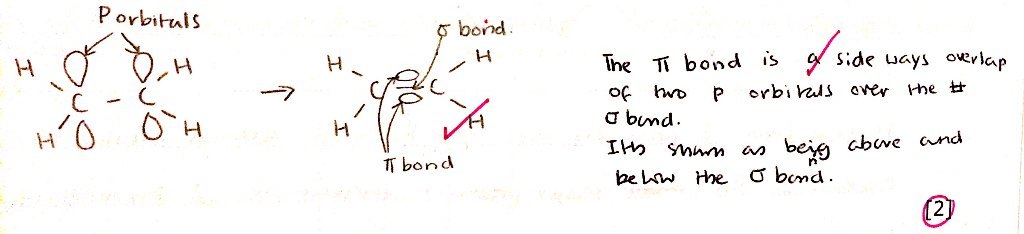 P orbitals
H H
C - C
H H
→
σ bond.
H H
C C
H H
π bond
The π bond is a side ways overlap
of two p orbitals over the
σ bond.
Its shown as being above and
below the σ bond.
[2]